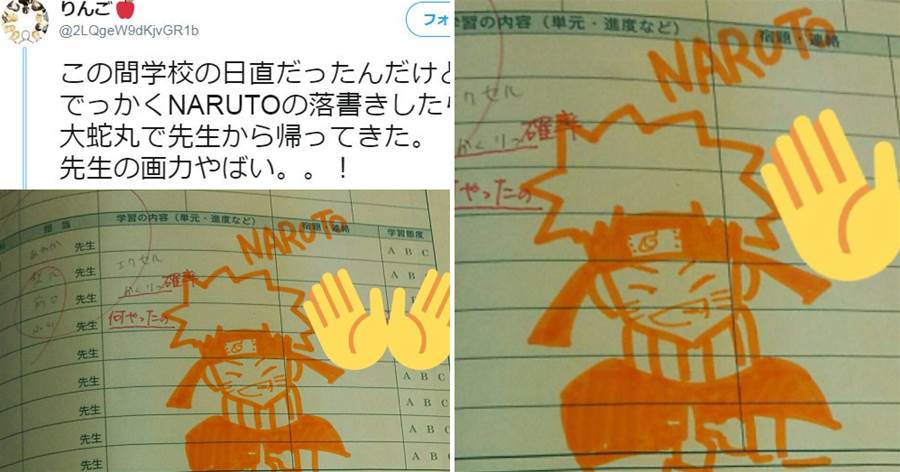 りんご
@2LQgeW9dKjvGR1b
フォ
この間学校の日直だったんだけど
でっかくNARUTOの落書きしたら
大蛇丸で先生から帰ってきた。
先生の画力やばい。。！
担当
学習の内容（単元・進度など）
宿題・連絡
学習態度
NARUTO
先生
A B C
先生
エクセル
A B
先生
がくりつ 確率
先生
何やったの
先生
先生
A B C
先生
A B C
先生
A B C
先生
A B C
学習の内容（単元・進度など）
宿題・連絡
NARUTO
クセル
がくりつ 確率
やったの